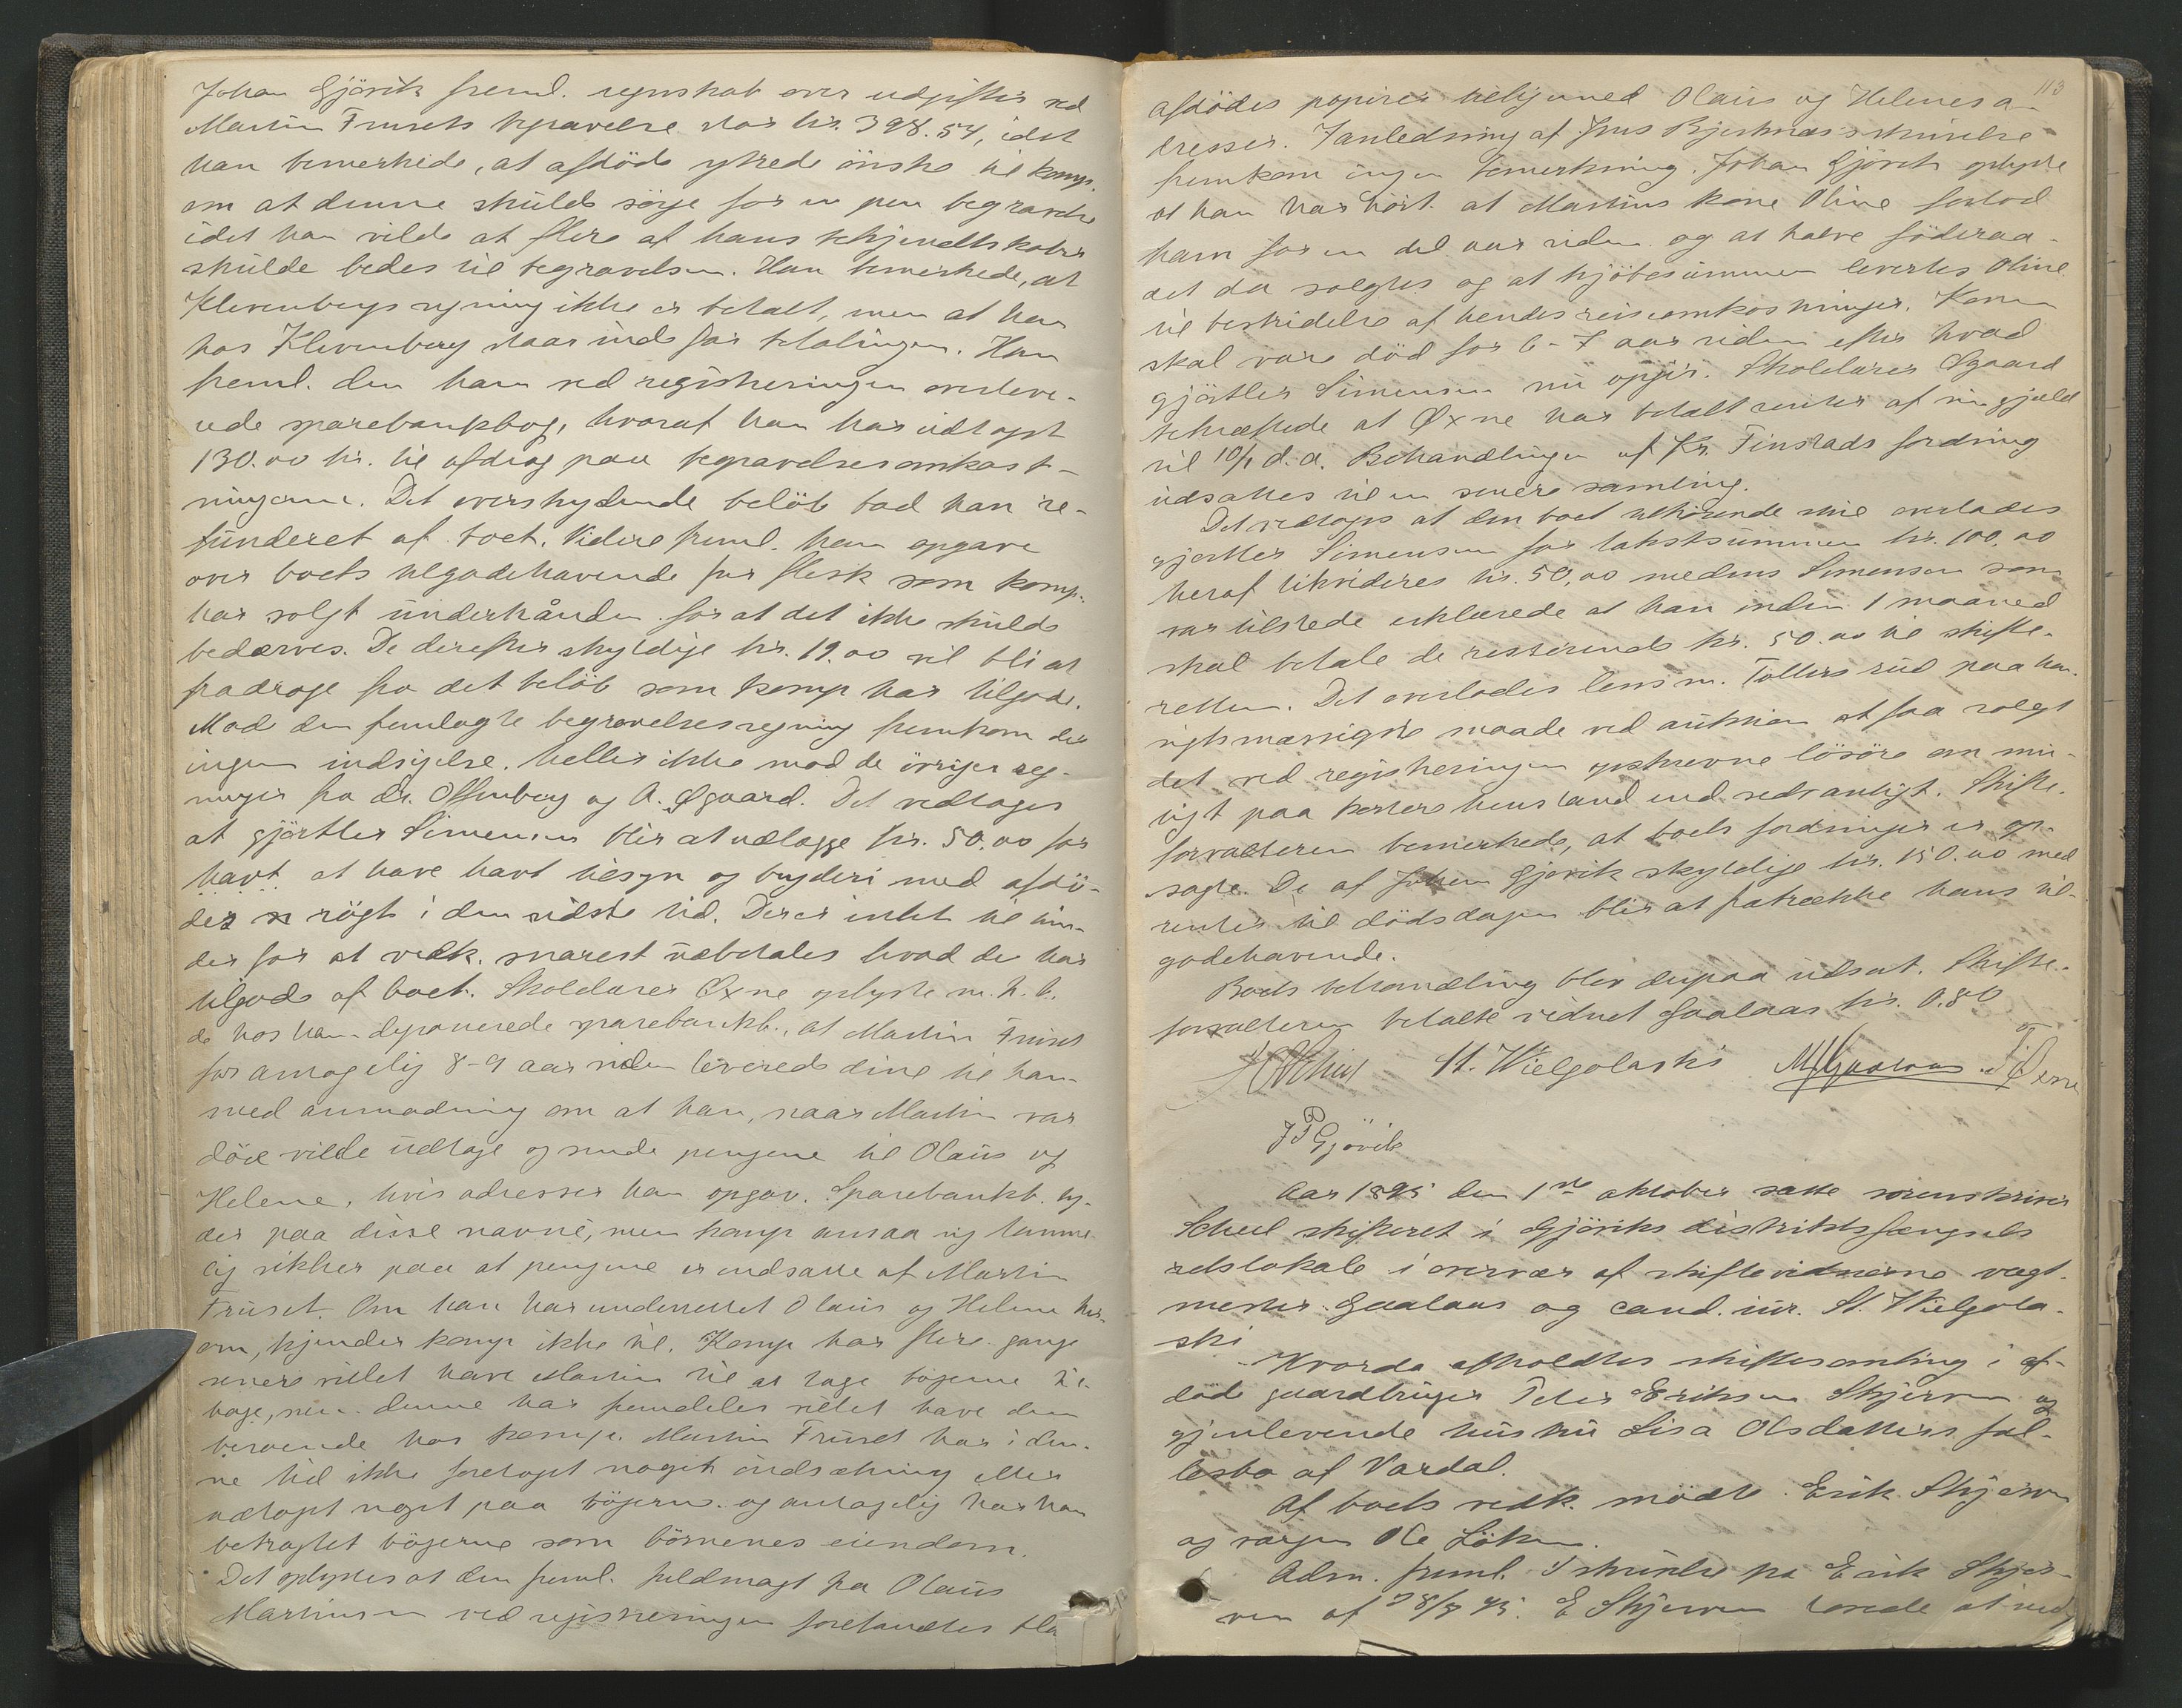 Johan Gjövik freml. regnskab over udgifter ved
Martin Frusets begravelse stor kr. 398.54, idet
han bemerkede, at afdöde ytrede önske til komp.
om at denne skulde sörge for en pen begravelse
idet han vilde at flere af hans bekjendtskaber
skulde bedes til begravelsen. Han bemerkede, at
Klevenbergs regning ikke er betalt, men at han
hos Klevenberg staar inde for betalingen. Han
freml. den ham ved registreringen overleve-
rede sparebankbog, hvoraf han har udtaget
130.00 kr. til afdrag paa begravelsesomkost-
ningerne. Det overskydende beløb bad han re-
funderet af boet. Videre freml. han opgave
over boets tilgodehavende for flesk som komp.
har solgt underhånden for at det ikke skulde
bedærves. De derefter skyldige kr. 19.00 vil bli at
fradrage fra det beløb som komp har tilgode.
Mod den fremlagte begravelsesregning fremkom der
ingen indsigelse. Heller ikke mod de övrige reg-
ninger fra dr. Offenberg og A. Øgaard. Det vedtoges
at gjörtler Simensen blir at udlægge kr. 50.00 for
havt at have havt tilsyn og bryderi med afdö-
des rögt i den sidste tid. Der er intet til hin-
der for at vedk. snarest udbetales hvad de har
tilgode af boet. Skolelærer Øxne oplyste m. h. t.
de hos ham deponerede sparebankb., at Martin Fruset
for antagelig 8-9 aar siden leverede dine til ham
med anmodning om at han, naar Martin var
död vilde udtage og sende pengene til Olaus og
Helene, hvis adresser han opgav. Sparebankb. ly-
der paa disse navne, men komp ansaa sig temme-
lig sikker paa at pengene er indsatte af Martin
Fruset. Om han har underrettet Olaus og Helene her-
om, kjender komp ikke til. Komp har flere gange
senere villet have Martin til at tage bögerne til-
bage, men denne har fremdeles villet have dem
beroende hos komp. Martin Fruset har i den-
ne tid ikke foretaget noget indsætning eller
udtaget noget paa bögerne og antagelig har han
betragtet bögerne som börnenes eiendom.
Det oplystes at den freml. fuldmagt fra Olaus
Martinsen ved registreringen forefandtes bla
113
afdödes papirer tilligemed Olaus og Helenes a-
dresser. I anledning af Jens Bjertnæs's skrivelse
fremkom ingen bemerkning. Johan Gjövik oplyste
at han har hört at Martins kone Oline forlod
ham for en del aar siden og at halve föderaa-
det da solgtes og at kjöbesummen levertes Oline
til bestridelse af hendes reiseomkostninger. Konen
skal være död for 6-7 aar siden efter hvad
gjörtler Simensen nu opgir. Skolelærer Øgaard
bekræftede at Øxne har betalt renter af sin gjæld
til 10/1 d. a. Behandlingen af Kr. Finstads fordring
udsattes til en senere samling.
Det vedtoges at den boet tilhörende sme overlades
gjörtler Simensen for takstsummen kr. 100,00
heraf likvideres kr. 50,00 medens Simensen som
var tilstede erklærede at han inden 1 maaned
skal betale de resterende kr. 50.00 til skifte-
retten. Det overlodes lensm. Tollersrud paa hen-
sigtsmæssigste maade ved auktion at faa solgt
det ved registreringen opskrevne lösöre om mu-
ligt paa kortere henstand end sedvanligt. Skifte-
forvalteren bemerkede, at boets fordringer er op-
sagte. De af Johan Gjövik skyldige kr. 150.00 med
renter til dödsdagen blir at fratrække hans til-
godehavende.
Boets behandling blev derpaa udsat. Skifte-
forvalteren betalte vidnet Gaalaas kr. 0.80
St. Wielgolaski M Gaalaas J Øxne
J P Gjövik
Aar 1895 den 1ste oktober satte sorenskriver
Scheel skifteret i Gjöviks distriktsfængsels
retslokale i overvær af skiftevidnerne vagt-
mester Gaalaas og cand. jur. St. Wielgola-
ski
Hvorda afholdtes skiftesamling i af-
död gaardbruger Peder Eriksen Skjerven og
gjenlevende hustru Lisa Olsdatters fæl-
lesbo af Vardal.
Af boets vedk. mödte Erik Skjerven
og vergen Ole Löken.
Adm. freml. skrivelse fra Erik Skjer-
ven af 28/9 95. E Skjerven lovede at ved